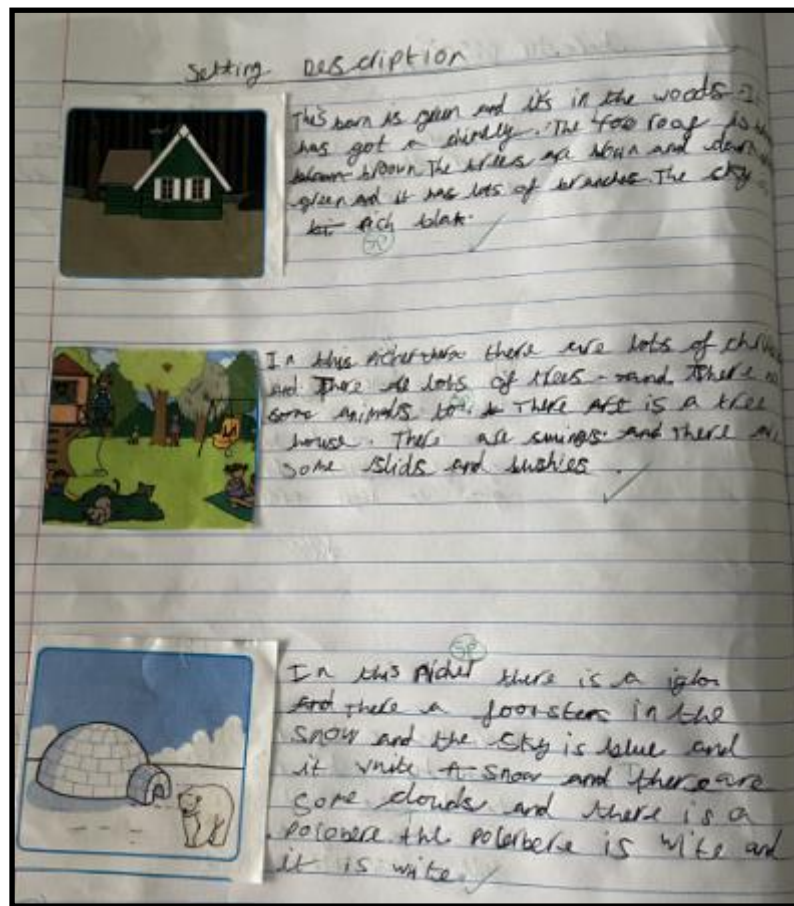 Setting Description
This barn is green and its in the woods. I
has got a chimely. The roof is
brown The trees are and dark
green and it has lots of branches. The sky
pich blak.
SP
In this picher there are lots of
and There are lots of trees and There
some animals to There is a tree
house. There are swings and there
some slids and bushies.
SP
In this picher there is a igloo
And There a foorsters in the
snow and the sky is blue and
it white snow and there are
some clouds and there is a
polobere the polerbere is wite and
it is write.